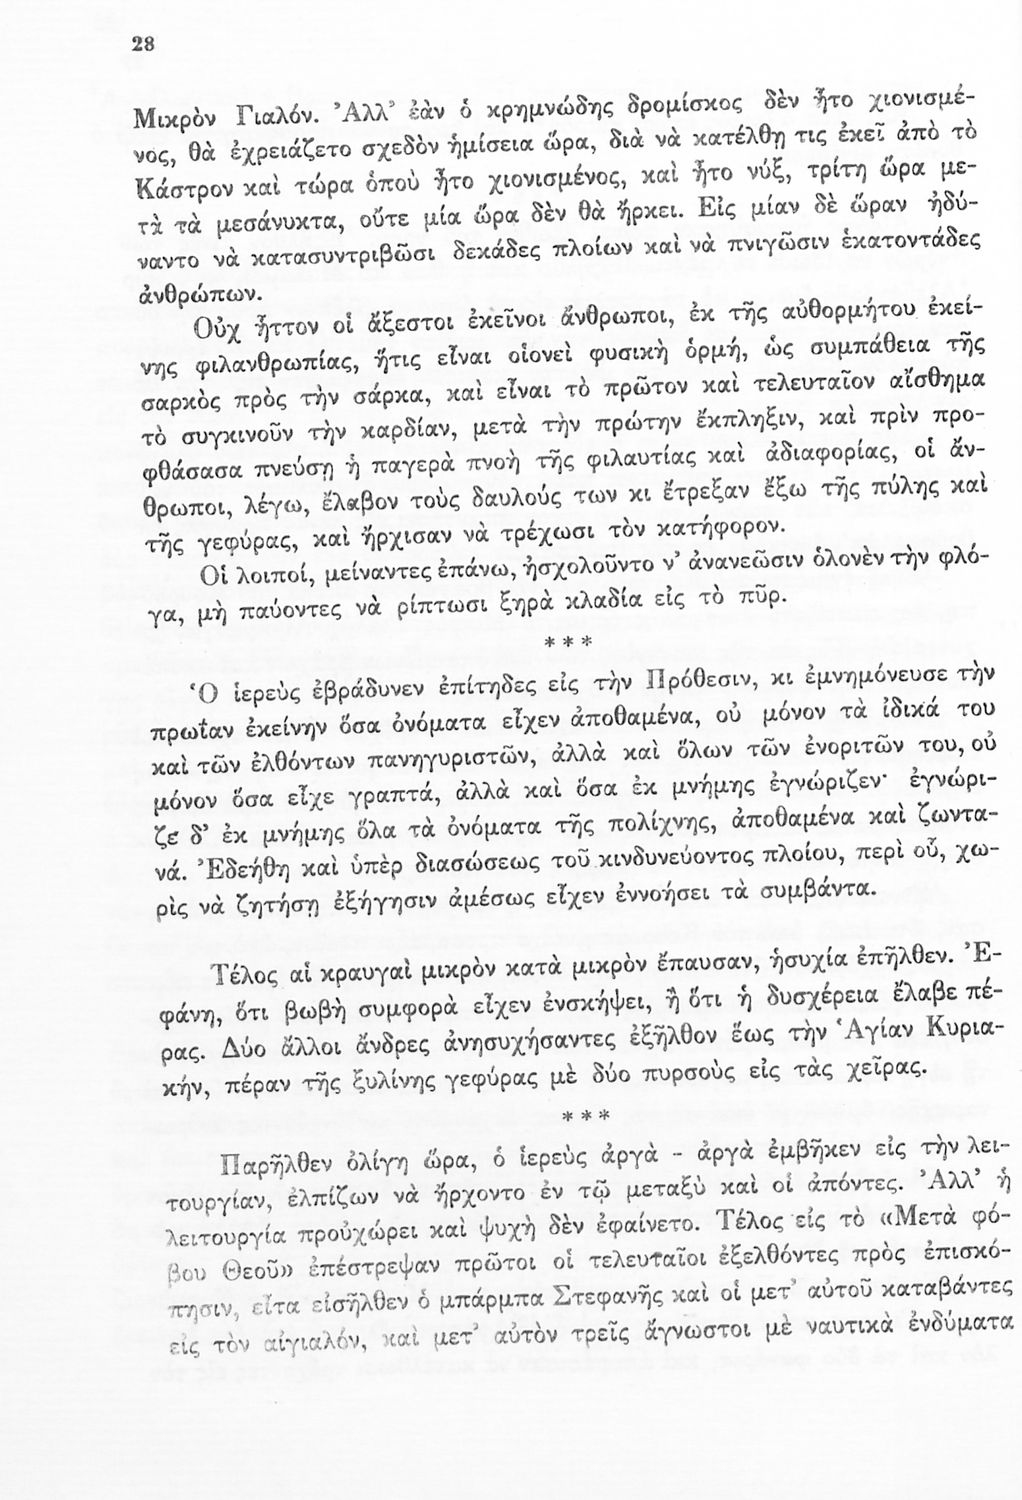 28
Μικρὸν Γιαλόν. Ἀλλ’ ἐὰν ὁ κρημνώδης δρομίσκος δὲν ἦτο χιονισμέ-
νος, θὰ ἐχρειάζετο σχεδὸν ἡμίσεια ὥρα, διὰ νὰ κατέλθῃ τις ἐκεῖ ἀπὸ τὸ
Κάστρον καὶ τώρα ὁποὺ ἦτο χιονισμένος, καὶ ἦτο νύξ, τρίτη ὥρα με-
τὰ τὰ μεσάνυκτα, οὔτε μία ὥρα δὲν θὰ ἤρκει. Εἰς μίαν δὲ ὥραν ἠδύ-
ναντο νὰ κατασυντριβῶσι δεκάδες πλοίων καὶ νὰ πνιγῶσιν ἑκατοντάδες
ἀνθρώπων.
Οὐχ ἧττον οἱ ἄξεστοι ἐκεῖνοι ἄνθρωποι, ἐκ τῆς αὐθορμήτου ἐκεί-
νης φιλανθρωπίας, ἥτις εἶναι οἱονεὶ φυσικὴ ὁρμή, ὡς συμπάθεια τῆς
σαρκὸς πρὸς τὴν σάρκα, καὶ εἶναι τὸ πρῶτον καὶ τελευταῖον αἴσθημα
τὸ συγκινοῦν τὴν καρδίαν, μετὰ τὴν πρώτην ἔκπληξιν, καὶ πρὶν προ-
φθάσασα πνεύσῃ ἡ παγερὰ πνοὴ τῆς φιλαυτίας καὶ ἀδιαφορίας, οἱ ἄν-
θρωποι, λέγω, ἔλαβον τοὺς δαυλούς των κι ἔτρεξαν ἔξω τῆς πύλης καὶ
τῆς γεφύρας, καὶ ἤρχισαν νὰ τρέχωσι τὸν κατήφορον.
Οἱ λοιποί, μείναντες ἐπάνω, ἠσχολοῦντο ν’ ἀνανεῶσιν ὁλονὲν τὴν φλό-
γα, μὴ παύοντες νὰ ρίπτωσι ξηρὰ κλαδία εἰς τὸ πῦρ.
* * *
Ὁ ἱερεὺς ἐβράδυνεν ἐπίτηδες εἰς τὴν Πρόθεσιν, κι ἐμνημόνευσε τὴν
πρωΐαν ἐκείνην ὅσα ὀνόματα εἶχεν ἀποθαμένα, οὐ μόνον τὰ ἰδικά του
καὶ τῶν ἐλθόντων πανηγυριστῶν, ἀλλὰ καὶ ὅλων τῶν ἐνοριτῶν του, οὐ
μόνον ὅσα εἶχε γραπτά, ἀλλὰ καὶ ὅσα ἐκ μνήμης ἐγνώριζεν· ἐγνώρι-
ζε δ’ ἐκ μνήμης ὅλα τὰ ὀνόματα τῆς πολίχνης, ἀποθαμένα καὶ ζωντα-
νά. Ἐδεήθη καὶ ὑπὲρ διασώσεως τοῦ κινδυνεύοντος πλοίου, περὶ οὗ, χω-
ρὶς νὰ ζητήσῃ ἐξήγησιν ἀμέσως εἶχεν ἐννοήσει τὰ συμβάντα.
Τέλος αἱ κραυγαὶ μικρὸν κατὰ μικρὸν ἔπαυσαν, ἡσυχία ἐπῆλθεν. Ἐ-
φάνη, ὅτι βωβὴ συμφορὰ εἶχεν ἐνσκήψει, ἢ ὅτι ἡ δυσχέρεια ἔλαβε πέ-
ρας. Δύο ἄλλοι ἄνδρες ἀνησυχήσαντες ἐξῆλθον ἕως τὴν Ἁγίαν Κυρια-
κήν, πέραν τῆς ξυλίνης γεφύρας μὲ δύο πυρσοὺς εἰς τὰς χεῖρας.
* * *
Παρῆλθεν ὀλίγη ὥρα, ὁ ἱερεὺς ἀργὰ - ἀργὰ ἐμβῆκεν εἰς τὴν λει-
τουργίαν, ἐλπίζων νὰ ἤρχοντο ἐν τῷ μεταξὺ καὶ οἱ ἀπόντες. Ἀλλ’ ἡ
λειτουργία προὐχώρει καὶ ψυχὴ δὲν ἐφαίνετο. Τέλος εἰς τὸ «Μετὰ φό-
βου Θεοῦ» ἐπέστρεψαν πρῶτοι οἱ τελευταῖοι ἐξελθόντες πρὸς ἐπισκό-
πησιν, εἶτα εἰσῆλθεν ὁ μπάρμπα Στεφανῆς καὶ οἱ μετ’ αὐτοῦ καταβάντες
εἰς τὸν αἰγιαλόν, καὶ μετ’ αὐτὸν τρεῖς ἄγνωστοι μὲ ναυτικὰ ἐνδύματα